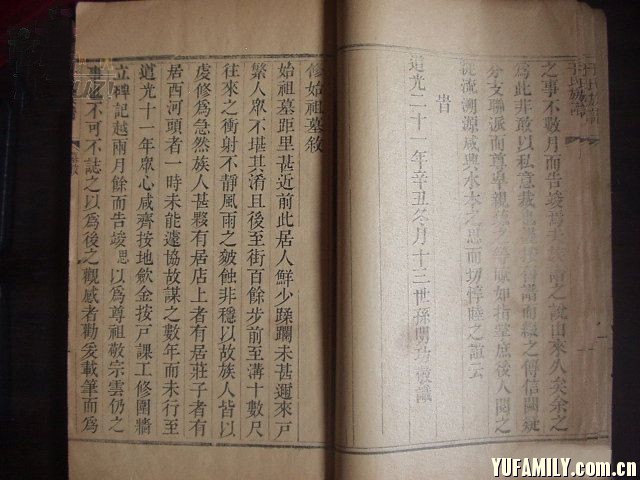 之事不數月而告竣焉
之說由來久矣余之
為此非敢以私意裁
譜而線之傳信闕疑
分支聯派而尊卑親
如指掌庶後人閱之
從流溯源咸興水木之思而切惇睦之誼云
旹
道光二十一年辛丑冬月十三世孫明
識
修始祖墓敘
始祖墓距里甚近前此居人鮮少蹂躪未甚邇來戶
繁人眾不堪其淆且後至街百餘步前至溝十數尺
往來之衝射不靜風雨之皴蝕非穩以故族人皆以
虔修為急然族人甚夥有居店上者有居莊子者有
居西河頭者一時未能遽協故謀之數年而未行至
道光十一年眾心咸齊按地斂金按戶課工修圍牆
立碑記越兩月餘而告竣思以為尊祖敬宗雲仍之
事不可不誌之以為後之觀感者勸爰載筆而為
YUFAMILY.com.cn